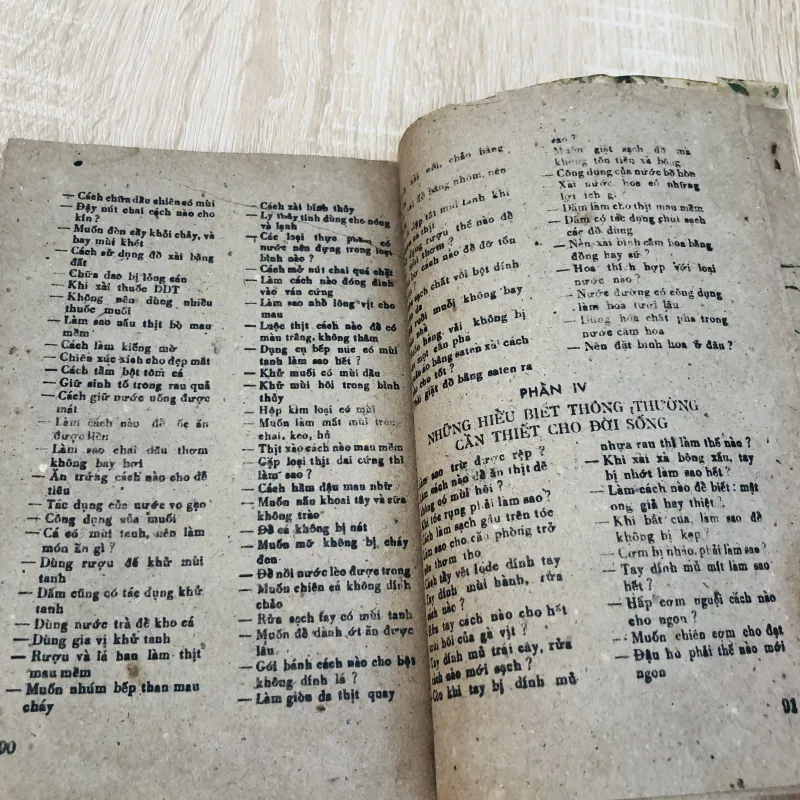 — Cách chữa dầu chiên có mùi
— Đậy nút chai cách nào cho
kín ?
— Muốn đèn cầy khỏi chảy, và
bay mùi khét
— Cách sử dụng đồ xài bằng
đất
— Chữa dao bị lỏng cán
— Khi xài thuốc DDT
— Không nên dùng nhiều
thuốc muối
— Làm sao nấu thịt bò mau
mềm
— Cách làm kiếng mờ
— Chiên xúc xích cho đẹp mắt
— Cách tẩm bột tôm cá
— Giữ sinh tố trong rau quả
— Cách giữ nước uống được
mát
— Làm cách nào để ốc ăn
được liền
— Làm sao chai dầu thơm
không bay hơi
— Ăn trứng cách nào cho dễ
tiêu
— Tác dụng của nước vo gạo
— Công dụng của muối
— Cá có mùi tanh, nên làm
món ăn gì ?
— Dùng rượu để khử mùi
tanh
— Dấm cũng có tác dụng khử
tanh
— Dùng nước trà để kho cá
— Dùng gia vị khử tanh
— Rượu và lá han làm thịt
mau mềm
— Muốn nhúm bếp than mau
cháy
90
— Cách xài bình thủy
— Ly thủy tinh dùng cho nóng
và lạnh
— Các loại thực phẩm có
nước nên đựng trong loại
bình nào ?
— Cách mở nút chai quá chặt
— Làm cách nào đóng đinh
vào ván cứng
— Làm sao nhổ lông vịt cho
mau
— Luộc thịt cách nào để có
màu trắng, không thâm
— Dụng cụ bếp núc có mùi
tanh làm sao hết ?
— Khử muối có mùi dầu
— Khử mùi hôi trong bình
thủy
— Hộp kim loại có mùi
— Làm mất mùi trong
chai, keo, hũ
— Thịt xào cách nào mau mềm
— Gặp loại thịt dai cứng thì
làm sao ?
— Cách hầm đậu mau nhừ
— Muốn nấu khoai tây và sữa
không trào
— Để cá không bị nát
— Muốn mỡ không bị cháy
đen
— Để nồi nước lèo được trong
— Muốn chiên cá không dính
chảo
— Rửa sạch fay có mùi tanh
— Muốn để dành ớt ăn được
lâu
— Gói bánh cách nào cho bột
không dính lá ?
— Làm giòn da thịt quay
nồi, chảo bằng
đồ bằng nhôm, nên
tốt mùi tanh khi
thịt
rượu thế nào để
thơm ?
cách nào để đỡ tốn
sạch chất vôi bột dính
muỗi không bay
bằng vải không bị
mọt cắn phá
áo bằng saten xài cách
cho tốt ?
giặt đồ bằng saten ra
sao ?
— Muốn giặt sạch đồ mà
không tốn tiền xà bông
— Công dụng của nước bồ hòn
— Xài nước hoa có những
lợi ích gì
— Dấm làm cho thịt mau mềm
— Dấm có tác dụng phui sạch
các đồ dùng
— Nên xài bình cắm hoa bằng
đồng hay sứ ?
— Hoa thích hợp với loại
nước nào ?
— Nước đường có công dụng
làm hoa tươi lâu
— Dùng hóa chất pha trong
nước cắm hoa
— Nên đặt bình hoa ở đâu ?
PHẦN IV
NHỮNG HIỂU BIẾT THÔNG THƯỜNG
CẦN THIẾT CHO ĐỜI SỐNG
Làm sao trừ được rệp ?
Làm cách nào để ăn thịt dê
không có mùi hôi ?
Khi tóc rụng phải làm sao ?
Cách làm sạch gầu trên tóc
Làm sao cho căn phòng trở
nên thơm tho
Cách tẩy vết Iode dính tay
Tay dính mùi hành, rửa
cách nào ?
Rửa tay cách nào cho hết
mùi hôi của gà vịt ?
Tay dính mủ trái cây, rửa
cách nào mới sạch ?
Còn khi tay bị dính mủ
nhựa rau thì làm thế nào ?
— Khi xài xà bông xấu, tay
bị nhớt làm sao hết ?
— Làm cách nào để biết : mật
ong giả hay thiệt ?
— Khi bắt cua, làm sao để
không bị kẹp ?
— Cơm bị nhão, phải làm sao ?
— Tay dính mủ mít làm sao
hết ?
— Hấp cơm nguội cách nào
cho ngon ?
— Muốn chiên cơm cho đạt
— Đậu hủ phải thế nào mới
ngon
91